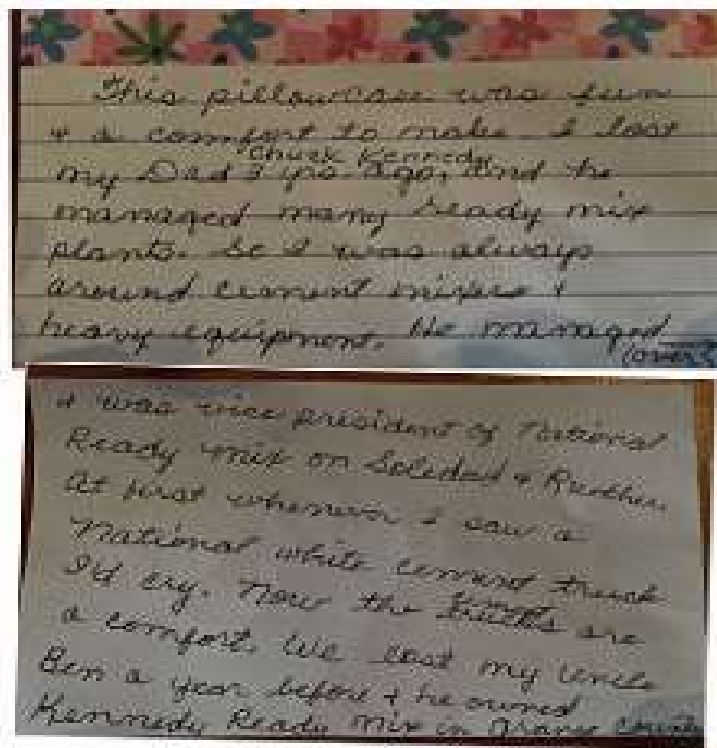 This pillowcase was fun
+ a comfort to make. I lost
Chuck Kennedy
my Dad 2 yrs ago, and he
managed many ready mix
plants. So I was always
around cement mixers +
heavy equipment. He managed
(over)
+ was vice president of National
Ready Mix on Soledad + Ruether.
At first whenever I saw a
National white cement truck
I'd cry. Now the cement trucks are
a comfort. We lost my Uncle
Ben a year before + he owned
Kennedy Ready Mix in Orange County